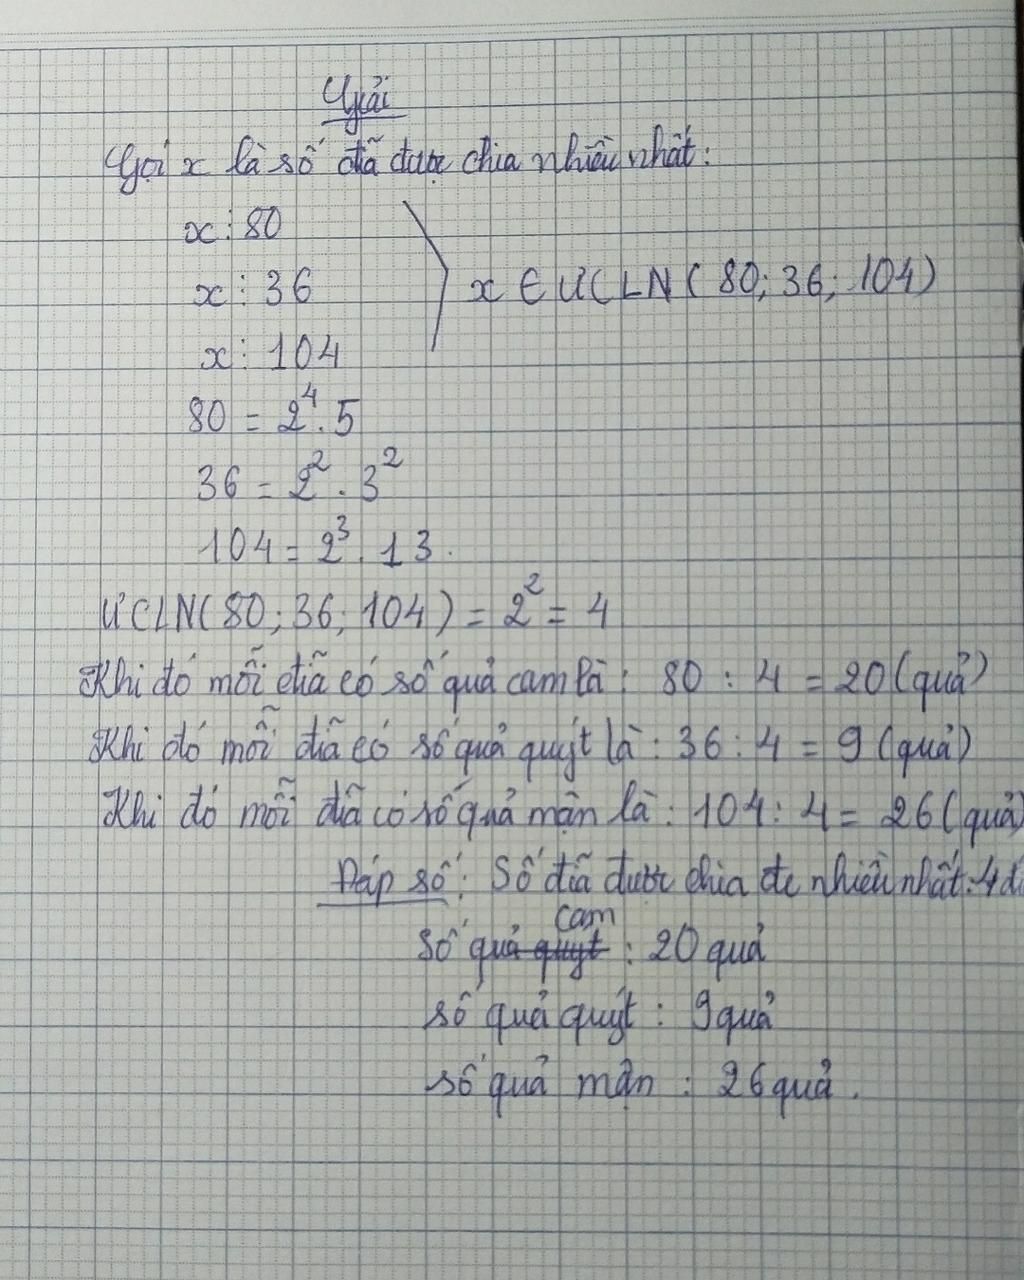 Giải
Gọi x là số đĩa được chia nhiều nhất:
x ⋮ 80
x ⋮ 36
x ⋮ 104
x ∈ ƯCLN( 80; 36; 104)
80 = 2⁴. 5
36 = 2² . 3²
104 = 2³ . 13.
ƯCLN( 80; 36; 104) = 2² = 4
Khi đó mỗi đĩa có số quả cam là : 80 : 4 = 20 (quả)
Khi đó mỗi đĩa có số quả quýt là : 36 : 4 = 9 (quả)
Khi đó mỗi đĩa có số quả mận là : 104 : 4 = 26 (quả)
Đáp số : Số đĩa được chia đc nhiều nhất : 4 đ
số quả cam : 20 quả
số quả quýt : 9 quả
số quả mận : 26 quả .